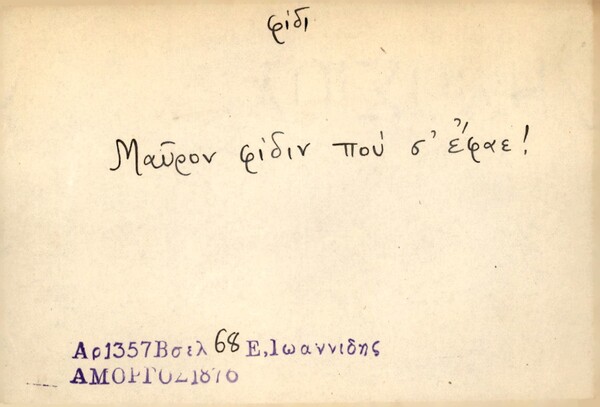 φίδι
Μαῦρον φίδιν πού σ' ἔφαε!
Αρ1357Βσελ 68 Ε,Ιωαννιδης
ΑΜΟΡΓΟΣ1876